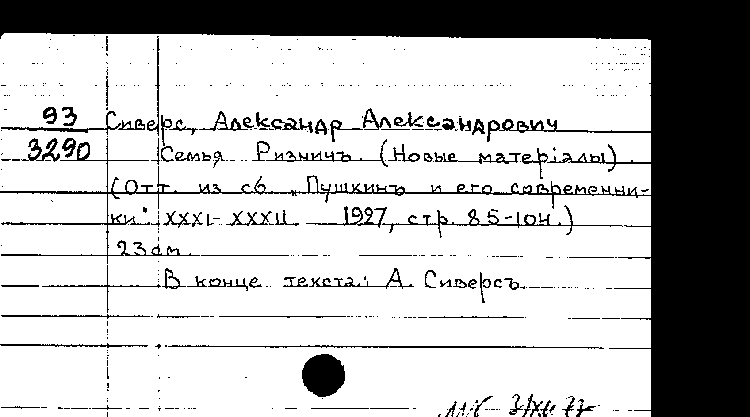 93 Сиверс, Александр Александрович
3290 Семья Ризничъ. (Новые матерiалы).
(Отт. из сб. „Пушкинъ и его современни-
ки" XXXI-XXXII. 1927, стр. 85-104.)
23 см.
В конце текста: А. Сиверсъ.